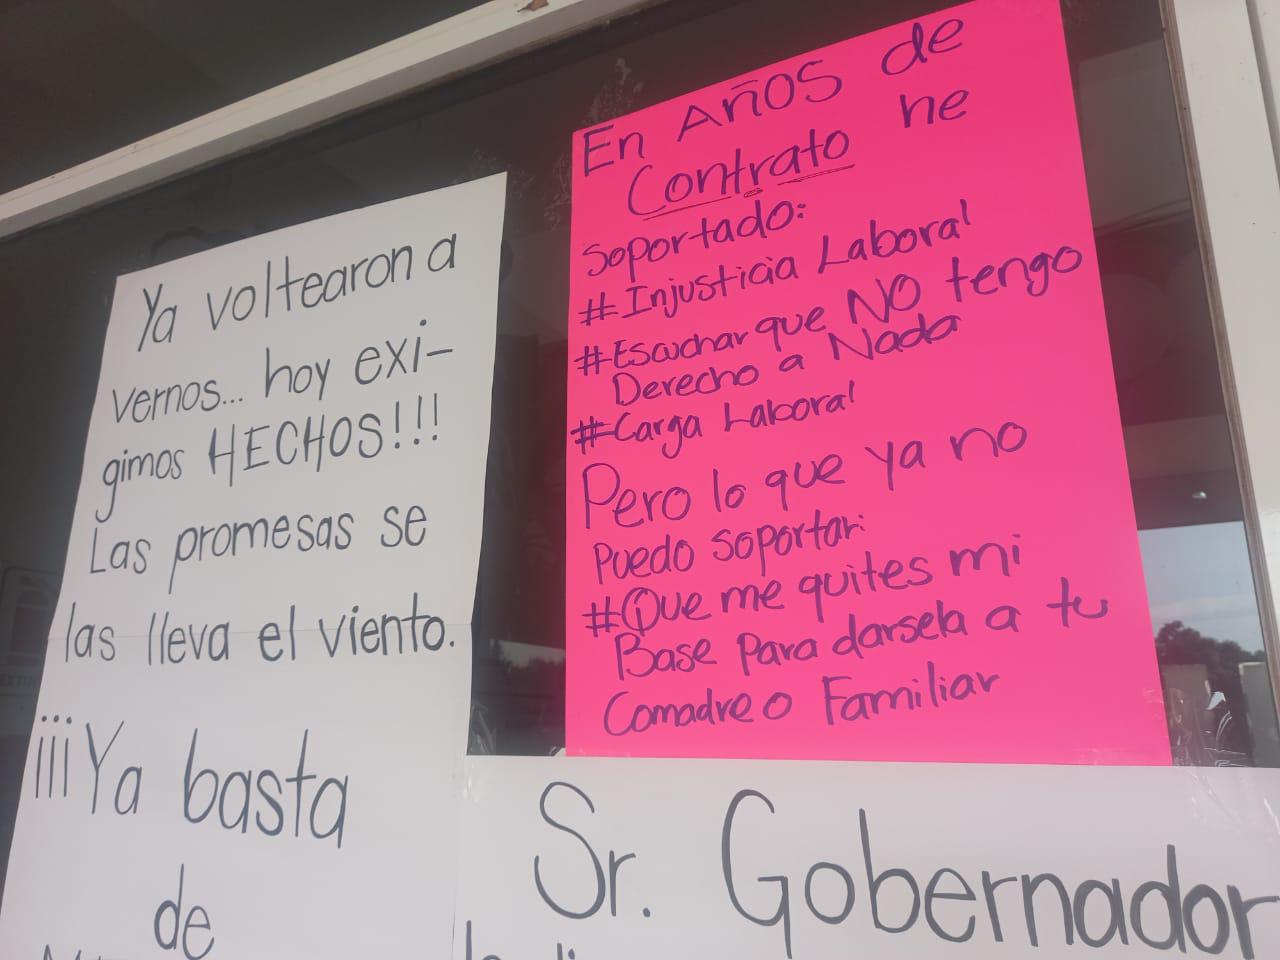 Ya voltearon a
vernos... hoy exi-
gimos HECHOS!!!
Las promesas se
las lleva el viento.
¡¡¡Ya basta
de
En AÑOS de
Contrato he
soportado:
# Injusticia Laboral
#Escuchar que NO tengo
Derecho a Nada
#Carga Laboral
Pero lo que ya no
Puedo soportar:
#Que me quites mi
Base Para darsela a tu
Comadre o Familiar
Sr. Gobernador